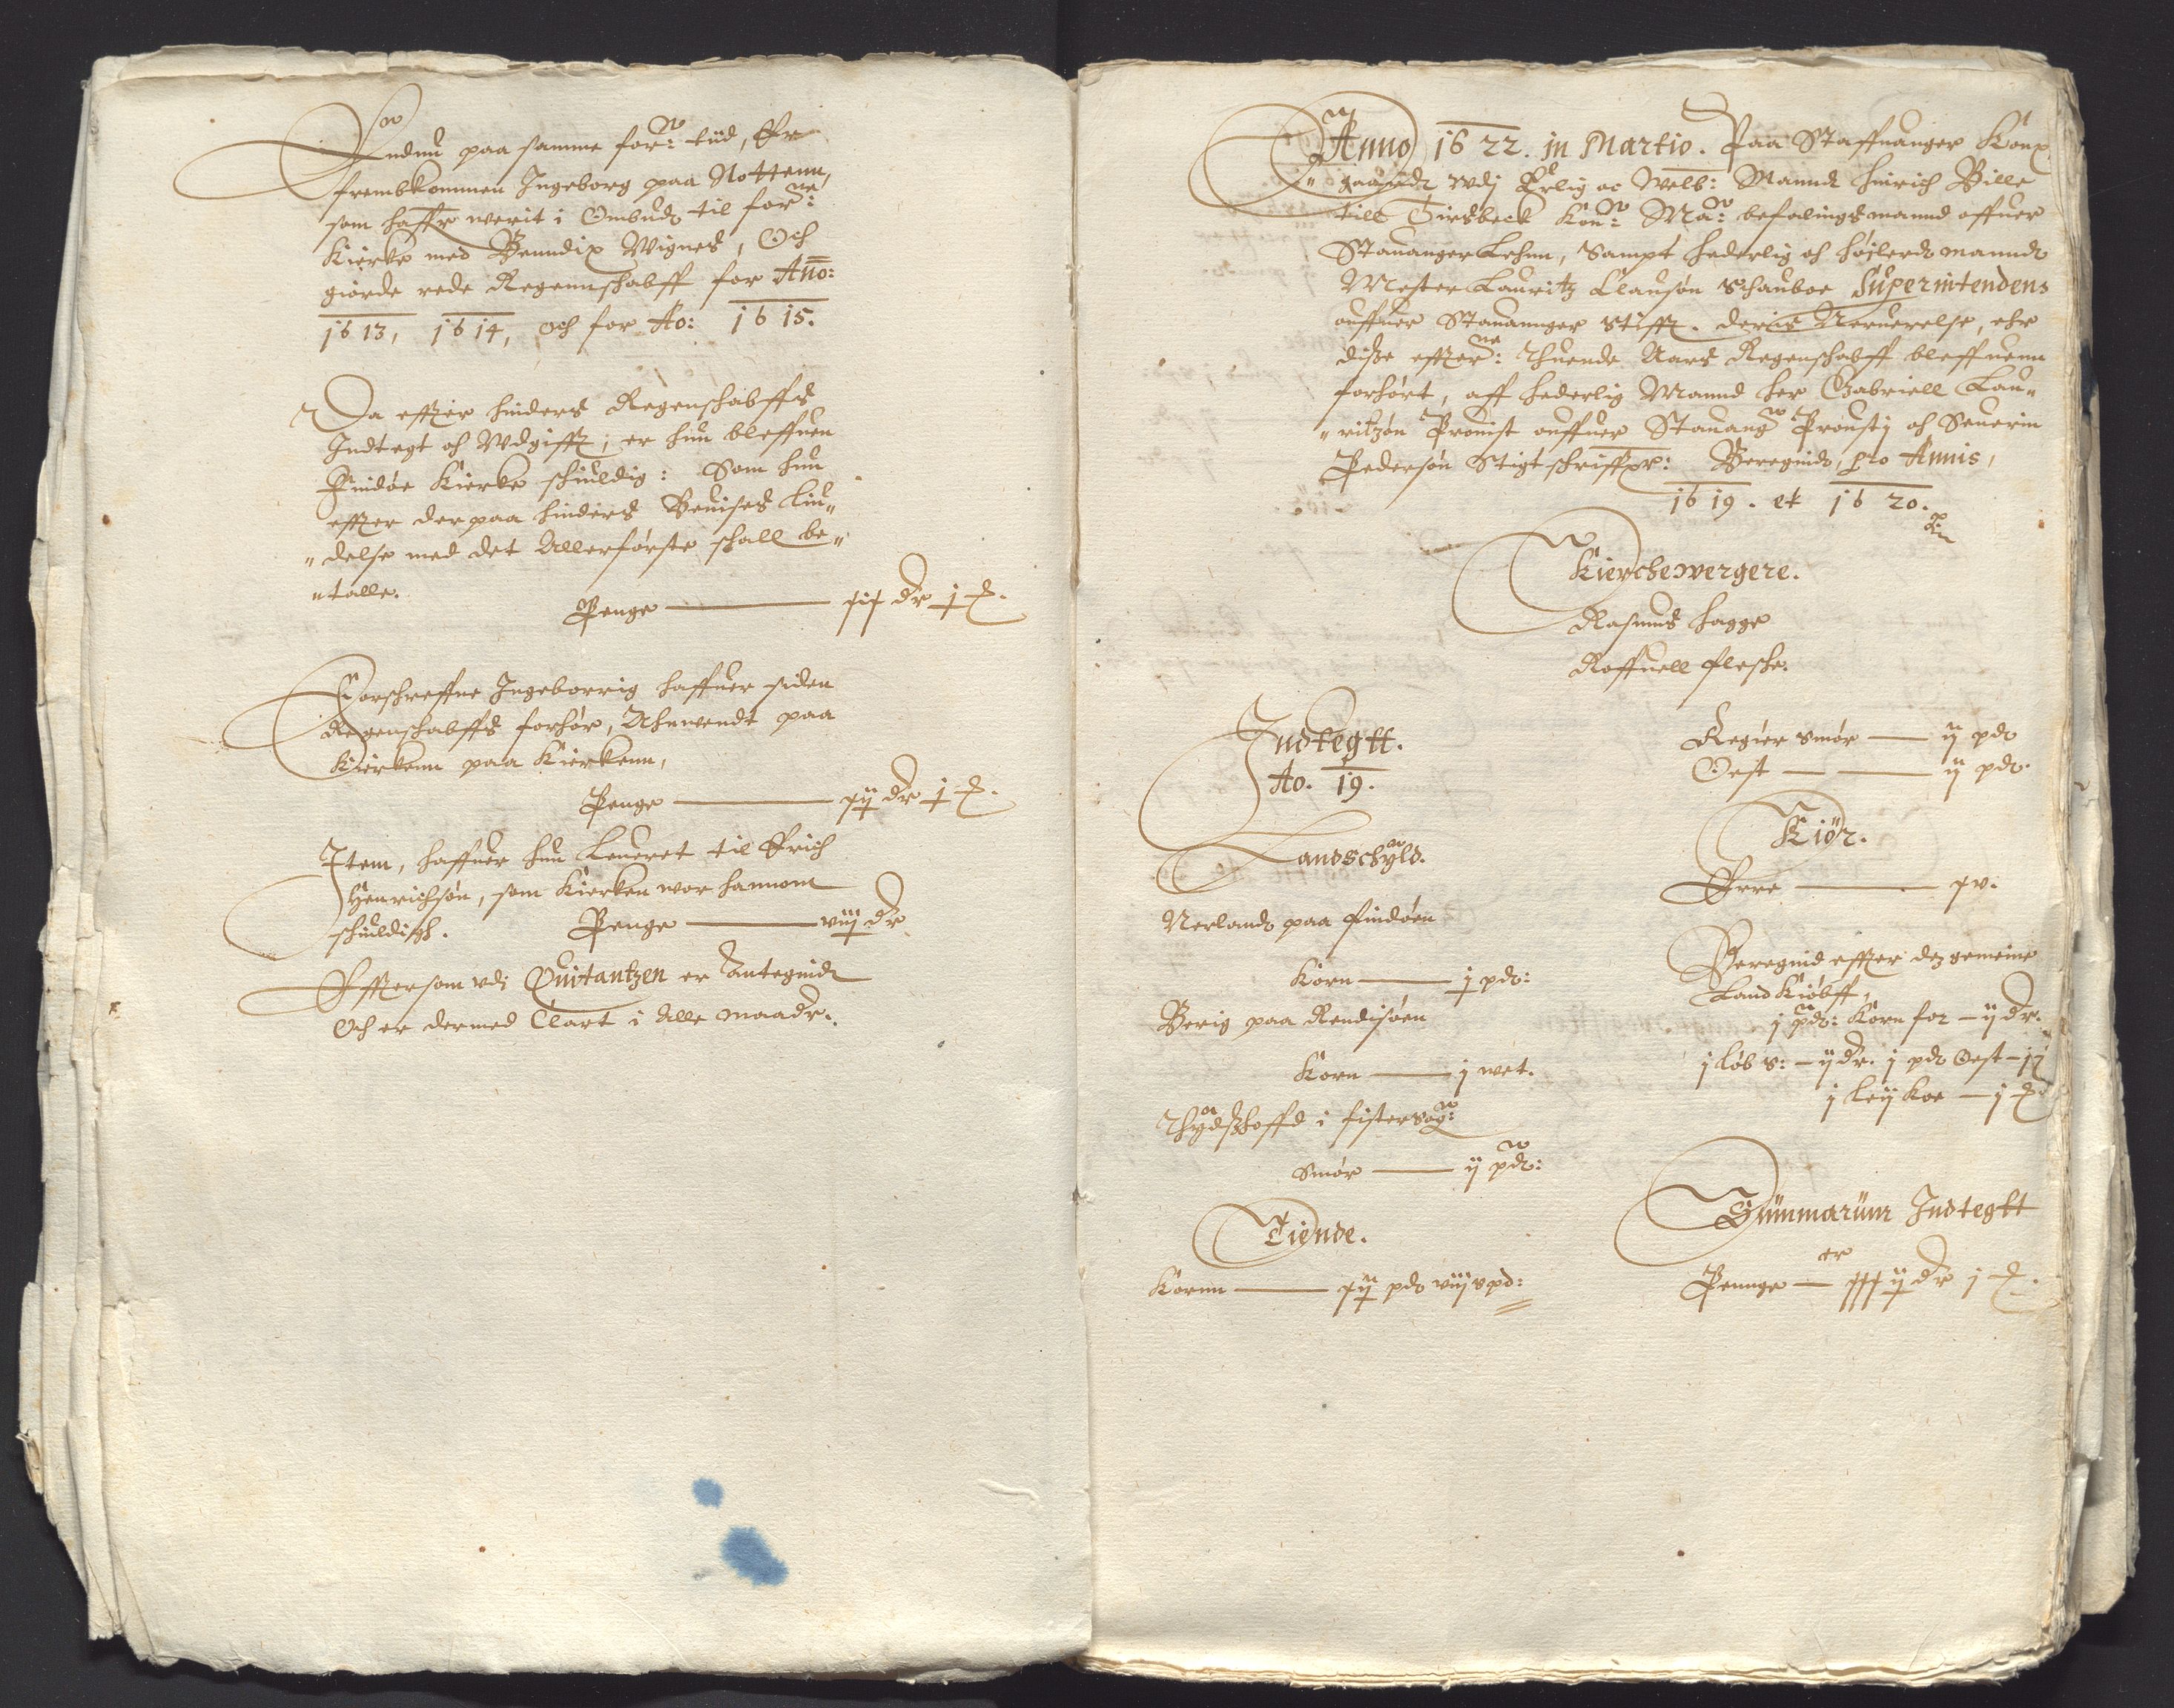 Endnu paa samme for: tiid, Er
frembkommen Ingeborg paa Nottenn,
som haffr werit i Ombuds til forne:
Kierke med Benndix Wignes, Och
giorde rede Regennschabff for Ano:
1613, 1614, och for Ao: 1615.
Da effter hinders Regenschabffs
Indtegt och Wdgifft, er hun bleffuen
Findöe Kierke schuldig: Som hun
effter derpaa hinders Beuises liu„
„delse med det Allerförste schall be„
„talle.
Penge — dr j
Forschreffne Ingeborrig haffuer siden
Regenschabffs forhör, Ahnwendt paa
Kierkenn paa Kierkenn,
Penge — xij dr j
Item, haffuer hun Leueret til Erich
Henrichsön, som Kierken wor hannom
schuldigh. Penge — viij dr
Effter som vdi Quitantzen er Antegnidt
Och er dermed Clart i Alle maadr.
Anno 1622. in Martio. Paa Staffuanger Konx„
„gaardt vdj Erlig oc Welb: Mannds Hinrich Bille
till Tirsbeck Kon: Ma: befalingsmannd offuer
Stauanger Lehnn, Sampt hederlig och höjlerds mannds
Mester Lauritz Clausön Schauboe Superintendens
ouffuer Stauannger Stifft. deris Neruerelse, ehr
disse effterne: Thuende Aars Regenschabff bleffuenn
forhört, aff hederlig Mannd her Gabriell Lau„
„ritzön Prouist ouffuer Stauang Prousti och Seuerin
Pedersön Stigtschriffr: Beregnids, pro Annis,
1619. et 1620.
Kierchewergere.
Rasmus Hagge
Roffuell fleske.
Indtegtt.
Ao. 19.
Landschyld.
Nerlands paa Findöen
Korn — j pds:
Berig paa Rendisöen
Korn — j wet.
Thydsshoffd i fistersog:
Smör — ij pds:
Tiende.
Kornn — xij pds viij spd:
Regier smör — ij pds
Oest — ij pds.
Kiör.
Erre — xv.
Beregnid effter dez gemeine
Land Kiöbff,
j pds: Korn for — ij dr.
j löb s: — ij dr. j pds Oest —
j leij koe — j
Summarum Indtegtt
er
Pennge — xxxij dr j